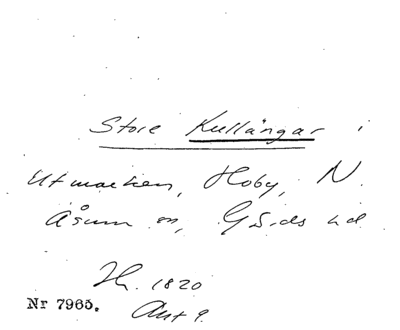 Store Kullängar i
Utmarken, Hoby, N.
Åsum sn, Gärds hd
Lh. 1820
Nr 7965. Akt 9.